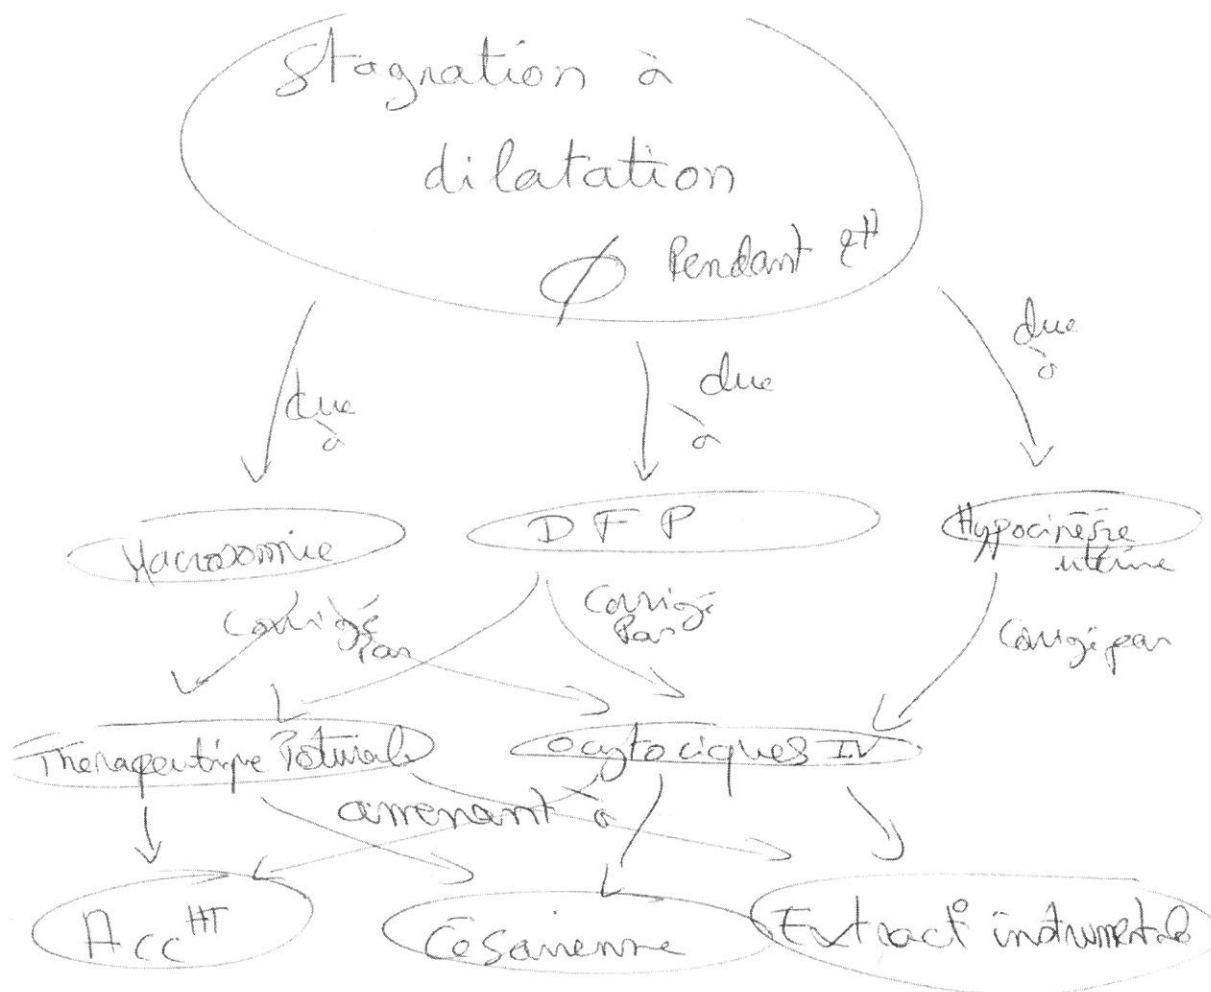 Stagnation à
dilatation
∅ Pendant 2H
due
à
due
à
due
à
Macrosomie
D F P
Hypocinésie
utérine
Corrigé
Par
Corrigé
Par
Corrigé par
Thérapeutique Posturale
Ocytociques IV
amenant à
Acc HT
Césarienne
Extract° instrumentale